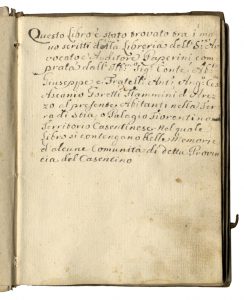 Questo Libro è stato trovato tra i ma
nuscritti della libreria dell'
vocato e Auditore Paperini com
prata dall' Conte
Giuseppe e Fratelli Angelo
Ascanio Goretti Flammini d'Arez
zo al presente Abitanti nella Ter
ra di Stia, o Palagio Fiorentino
Territorio Casentinese. Nel quale
libro si contengano belle memorie
d'alcune Comunità di detta Provin
cia del Casentino